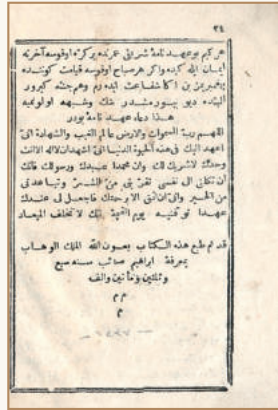 ٢٤
هر كيم بو عهد نامهٔ شريفى عمرنده بر كره اوقوسه آخرته
ايمان ايله كيده واكر هر صباح اوقوسه قيامت كوننده
بن اكا شفاعت ايده رم وهم جنته كيرور
ديو بيورمشدر شك وشبهه اولونميه
هذا دعاء عهد نامه بودر
اللهم رب السموات والارض عالم الغيب والشهادة انى
اعهد اليك فى هذه الحيوة الدنيا انى اشهد ان لااله الا انت
وحدك لاشريك لك وان محمدا عبدك ورسولك فانك
ان تكلنى الى نفسى تقربنى من الشر وتباعدنى
من الخير وانى لااثق الا برحمتك فاجعل لى عندك
عهدا توفنيه يوم القيمة انك لا تخلف الميعاد
قد تم طبع هذه الكتاب بعون الله الملك الوهاب
بمعرفة ابراهيم صائب سنه سبع
وثلثين ومأتين والف
م م
م
١٢٣٧